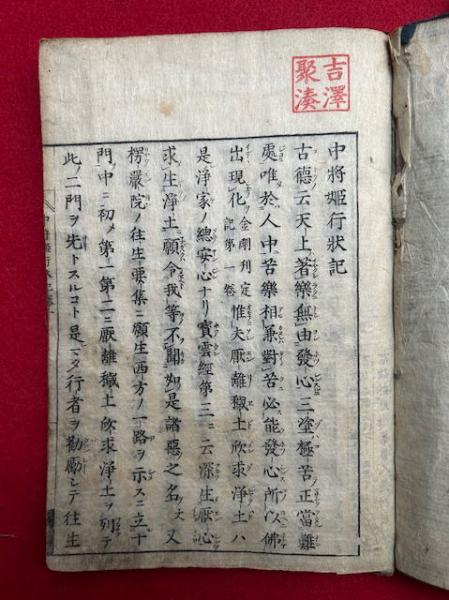 吉澤
聚湊
中將姬行狀記
古德云天上著樂無由發心三塗極苦正當難
處唯於人中苦樂相兼對苦必能發心所以佛
出現化ノ金剛刋定記第一卷惟夫厭離穢土欣求淨土ハ
是淨家ノ總安心ナリ寳雲經第三ニ云深生厭心
求生淨土願令我等不聞如是諸惡之名ヲ文又
楞嚴院ノ往生要集ニ願生西方ノ一路ヲ示スニ立十
門ノ中ニ初メ第一第二ニ厭離穢土欣求淨土ヲ列テ
此ノ二門ヲ先トスルコト是マタ行者ヲ勸勵シテ往生